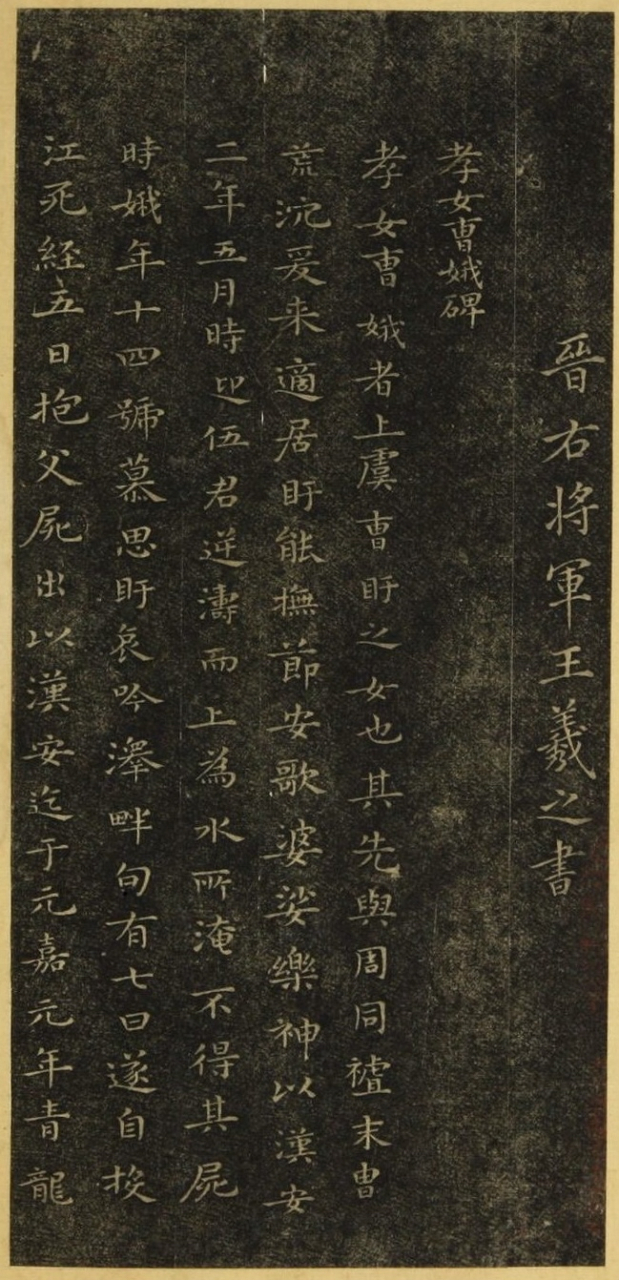 晉右將軍王羲之書
孝女曹娥碑
孝女曹娥者上虞曹盱之女也其先與周同祖末冑
荒沉爰来適居盱能撫節安歌婆娑樂神以漢安
二年五月時迎伍君逆濤而上為水所淹不得其屍
時娥年十四號慕思盱哀吟澤畔旬有七日遂自投
江死経五日抱父屍出以漢安迄于元嘉元年青龍